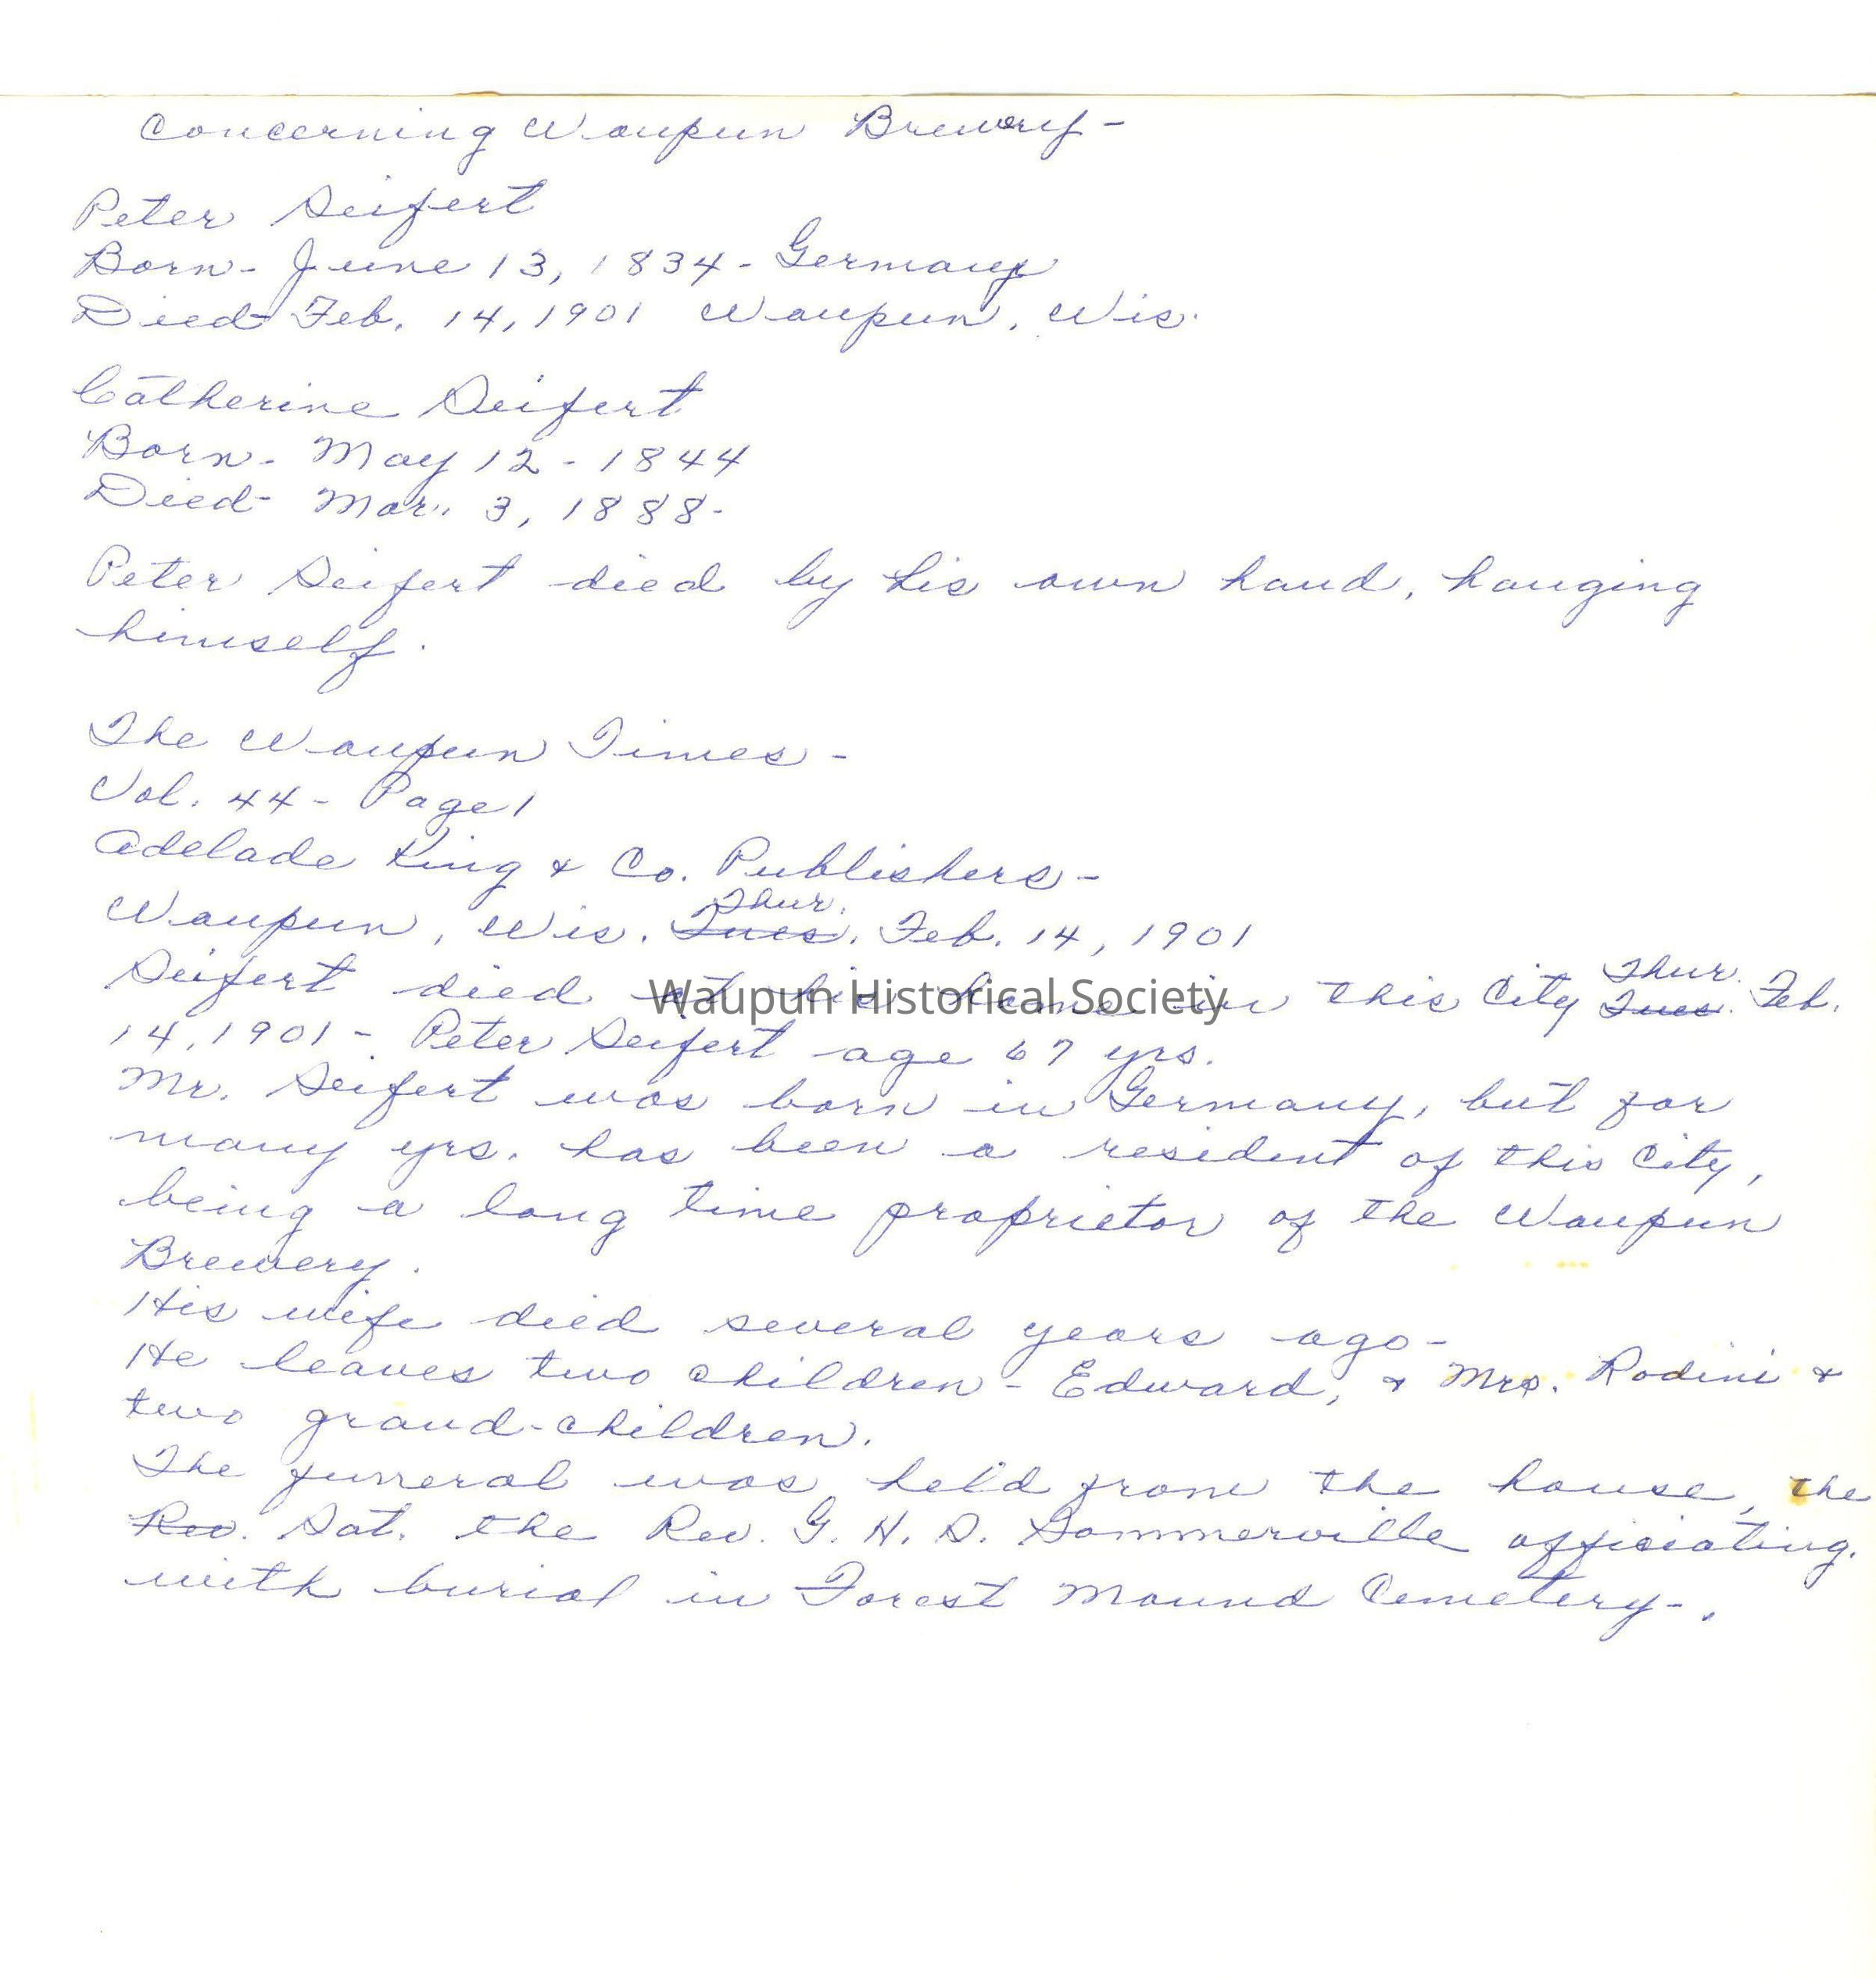 Concerning Waupun Brewery-
Peter Seifert
Born- June 13, 1834- Germany
Died- Feb. 14, 1901 Waupun, Wis.
Catherine Seifert
Born- May 12- 1844
Died- Mar. 3, 1888-
Peter Seifert died by his own hand, hanging
himself.
The Waupun Times-
Vol. 44- Page 1
Adelade King & Co. Publishers-
Thur.
Waupun, Wis. Tues. Feb. 14, 1901
Thur.
Seifert died at his home in this City Tues. Feb.
Waupun Historical Society
14, 1901- Peter Seifert age 67 yrs.
Mr. Seifert was born in Germany, but for
many yrs. has been a resident of this City,
being a long time proprietor of the Waupun
Brewery.
His wife died several years ago-
He leaves two children- Edward, & Mrs. Rodini &
two grand-children.
The funeral was held from the house, the
Rev. Sat. the Rev. G. H. S. Sommerville officiating.
with burial in Forest Mound Cemetery-.